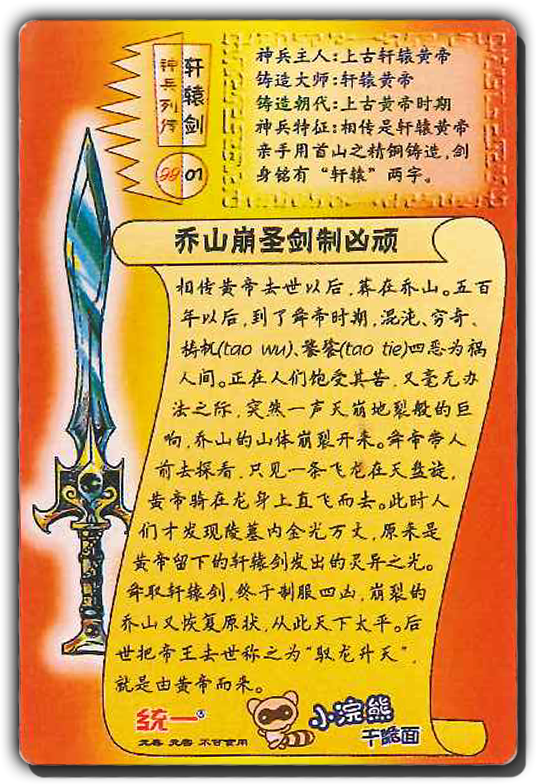 轩辕剑
神兵列传
99 01
神兵主人:上古轩辕黄帝
铸造大师:轩辕黄帝
铸造朝代:上古黄帝时期
神兵特征:相传是轩辕黄帝
亲手用首山之精铜铸造,剑
身铭有“轩辕”两字。
乔山崩圣剑制凶顽
相传黄帝去世以后,葬在乔山。五百
年以后,到了舜帝时期,混沌、穷奇、
梼杌(tao wu)、饕餮(tao tie)四恶为祸
人间。正在人们饱受其苦,又毫无办
法之际,突然一声天崩地裂般的巨
响,乔山的山体崩裂开来。舜帝带人
前去探看,只见一条飞龙在天盘旋,
黄帝骑在龙身上直飞而去。此时人
们才发现陵墓内金光万丈,原来是
黄帝留下的轩辕剑发出的灵异之光。
舜取轩辕剑,终于制服四凶,崩裂的
乔山又恢复原状,从此天下太平。后
世把帝王去世称之为“驭龙升天”,
就是由黄帝而来。
统一®
无毒 无害 不可食用
小浣熊
干脆面